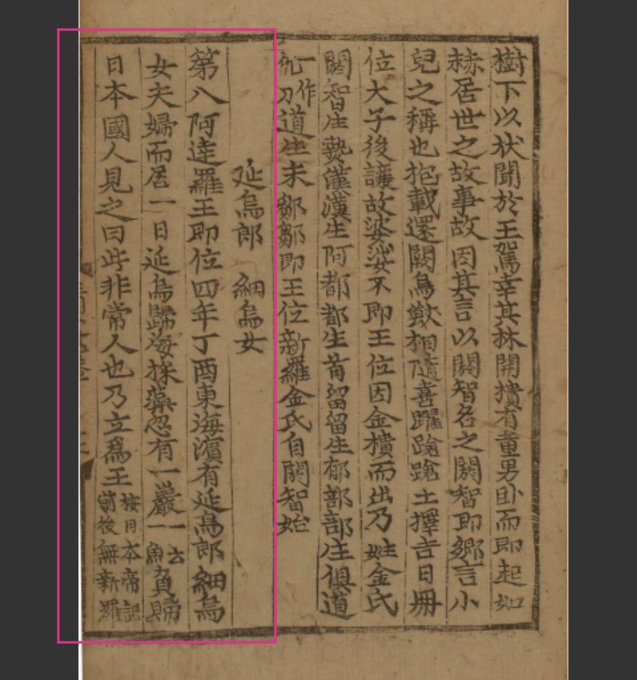 樹下以狀聞於王駕幸其林開樻有童男臥而即起如
赫居世之故事故因其言以閼智名之閼智即鄉言小
兒之稱也抱載還闕鳥獸相隨喜躍蹌蹌土擇吉日冊
位大子後讓故婆娑不即王位因金樻而出乃姓金氏
閼智生熱漢漢生阿都都生首留留生郁部部生俱道
一作仇刀道生未鄒鄒即王位新羅金氏自閼智始
延烏郎 細烏女
第八阿達羅王即位四年丁酉東海濱有延烏郎細烏
女夫婦而居一日延烏歸海採藻忽有一巖一云一魚負歸
日本國人見之曰此非常人也乃立爲王按日本帝記前後無新羅